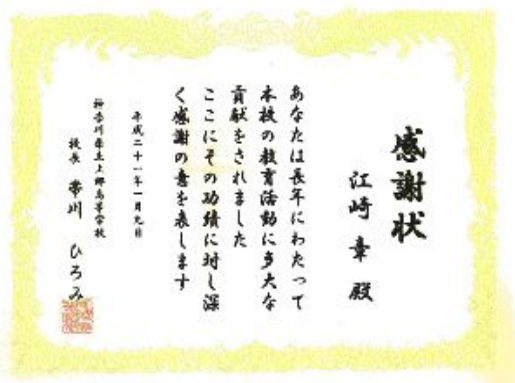 感謝状
江崎 章 殿
あなたは長年にわたって
本校の教育活動に多大な
貢献をされました
ここにその功績に対し深
く感謝の意を表します
平成二十一年一月九日
神奈川県立上郷高等学校
校長 常川 ひろみ